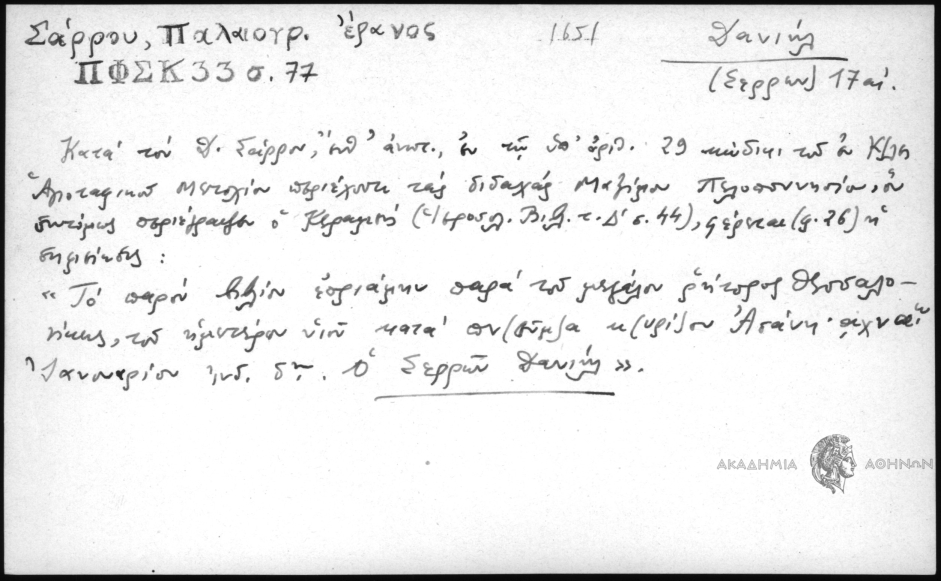 Σάρρου, Παλαιογρ. Ἔρανος 1651 Δανιήλ
ΠΦΣΚ 33 σ. 77 (Σερρῶν) 17 αἰ.
Κατά τόν Δ. Σάρρον, ἔνθ' ἀνωτ., ἐν τῷ ὑπ' ἀριθ. 29 κώδικι τοῦ ἐν Κ/πλει
Ἁγιοταφικοῦ Μετοχίου περιέχοντι τάς διδαχάς Μαξίμου Πελοποννησίου, ὅν
συντόμως περιέγραψεν ὁ Κεραμεύς (Ἱεροσολ. Βιβλ. τ. Δ' σ. 44), φέρεται (φ. 26) ἡ
σημείωσις:
« Τό παρόν βιβλίον ἐπριάμην παρά τοῦ μεγάλου ῥήτορος Θεσσαλο-
νίκης, τοῦ ἡμετέρου υἱοῦ κατά πν(εῦμ)α κ(υρί)ου Ἀσάνη· αχναῳ
Ἰανουαρίου ἰνδ. δης. Ὁ Σερρῶν Δανιήλ ».
ΑΚΑΔΗΜΙΑ ΑΘΗΝΩΝ